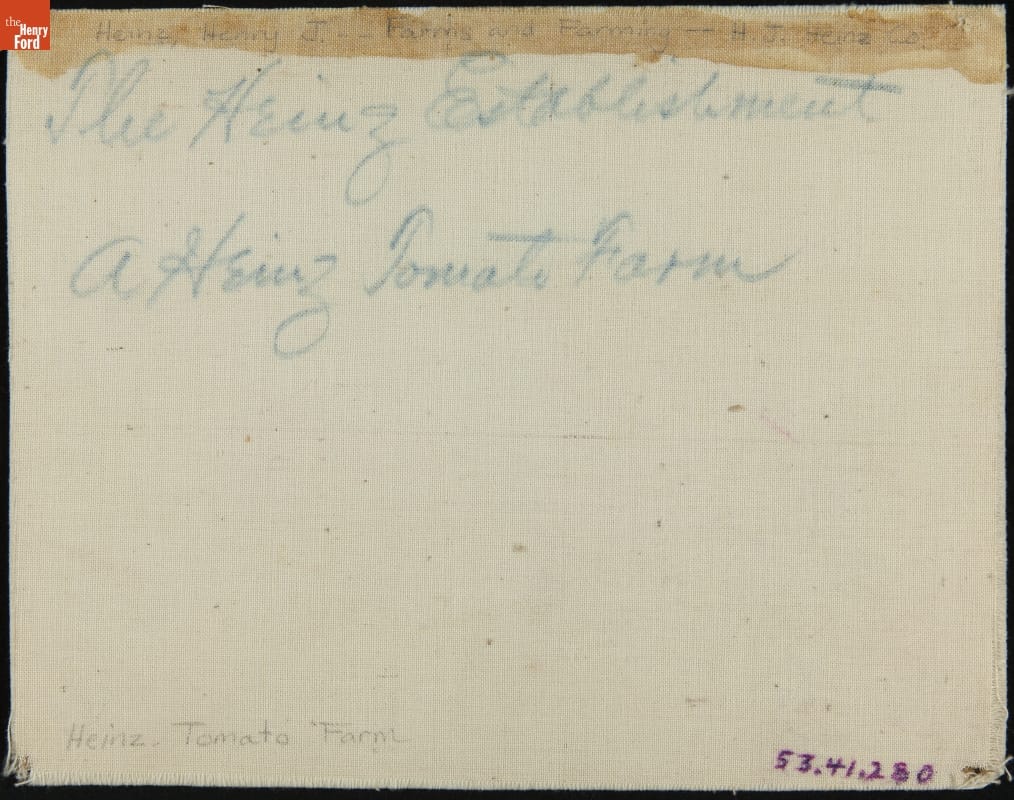 the Henry Ford
Heinz, Henry J. -- Farms and Farming -- H. J. Heinz Co.
The Heinz Establishment
A Heinz Tomato Farm
Heinz. Tomato Farm
53.41.280